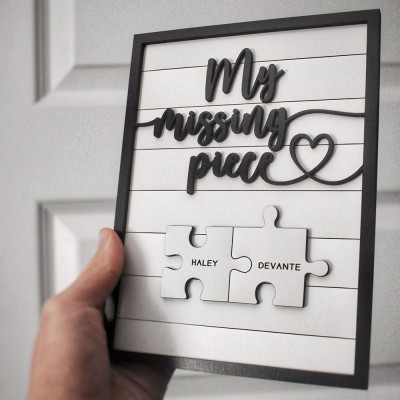 My
missing
piece
HALEY DEVANTE